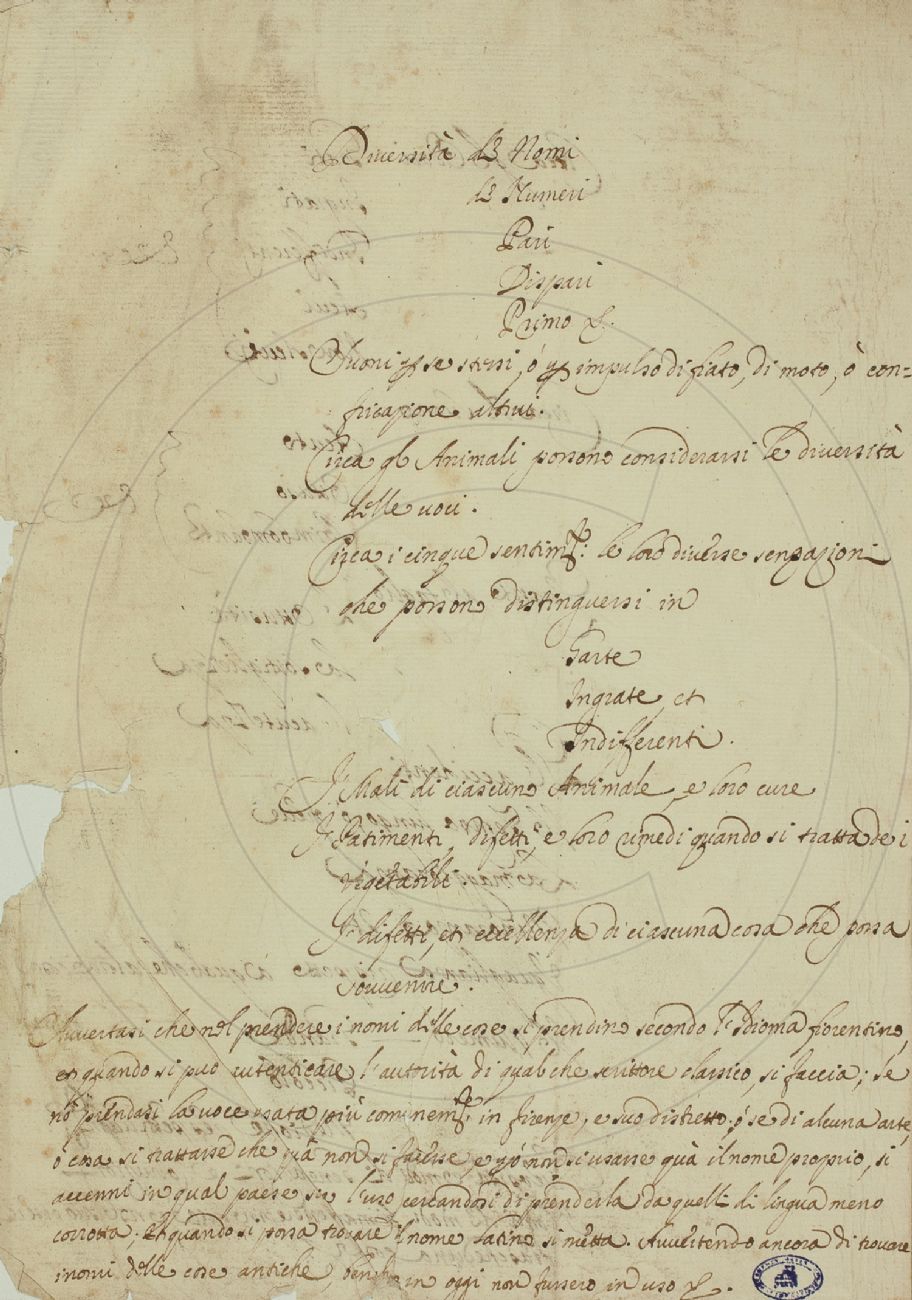 Diversità di Nomi
di Numeri
Pari
Dispari
Primo &.
Suoni p se stessi, ò p impulso di fiato, di moto, ò con=
fricazione altrui.
Circa gl Animali possono considerarsi le diversità
delle voci.
Circa i cinque sentimti: le loro diverse senzazioni
che possono distinguersi in
Grate
Ingrate, et
Indifferenti.
I Mali di ciascuno Animale, e loro cure
I Patimenti, difetti, e loro rimedi quando si tratta de i
vegetabili.
I difetti, et eccellenza di ciascuna cosa che possa
souvenire.
Avvertasi che nel prendere i nomi delle cose si prendino secondo l'Idioma fiorentino,
et quando si può autenticare l'autorità di qualche scrittore classico, si faccia; se
nò prendasi la voce usata più comunemte in firenze, e suo distretto; ò se di alcuna arte,
ò cosa si trattasse che quà non si facesse, e p ò non si usasse quà il nome proprio, si
accenni in qual paese su l'uso cercandosi di prenderla da quelli di lingua meno
corrotta. Et quando si possa trovare il nome latino si metta. Avvertendo ancora di trovare
i nomi delle cose antiche benche in oggi non fussero in uso &.